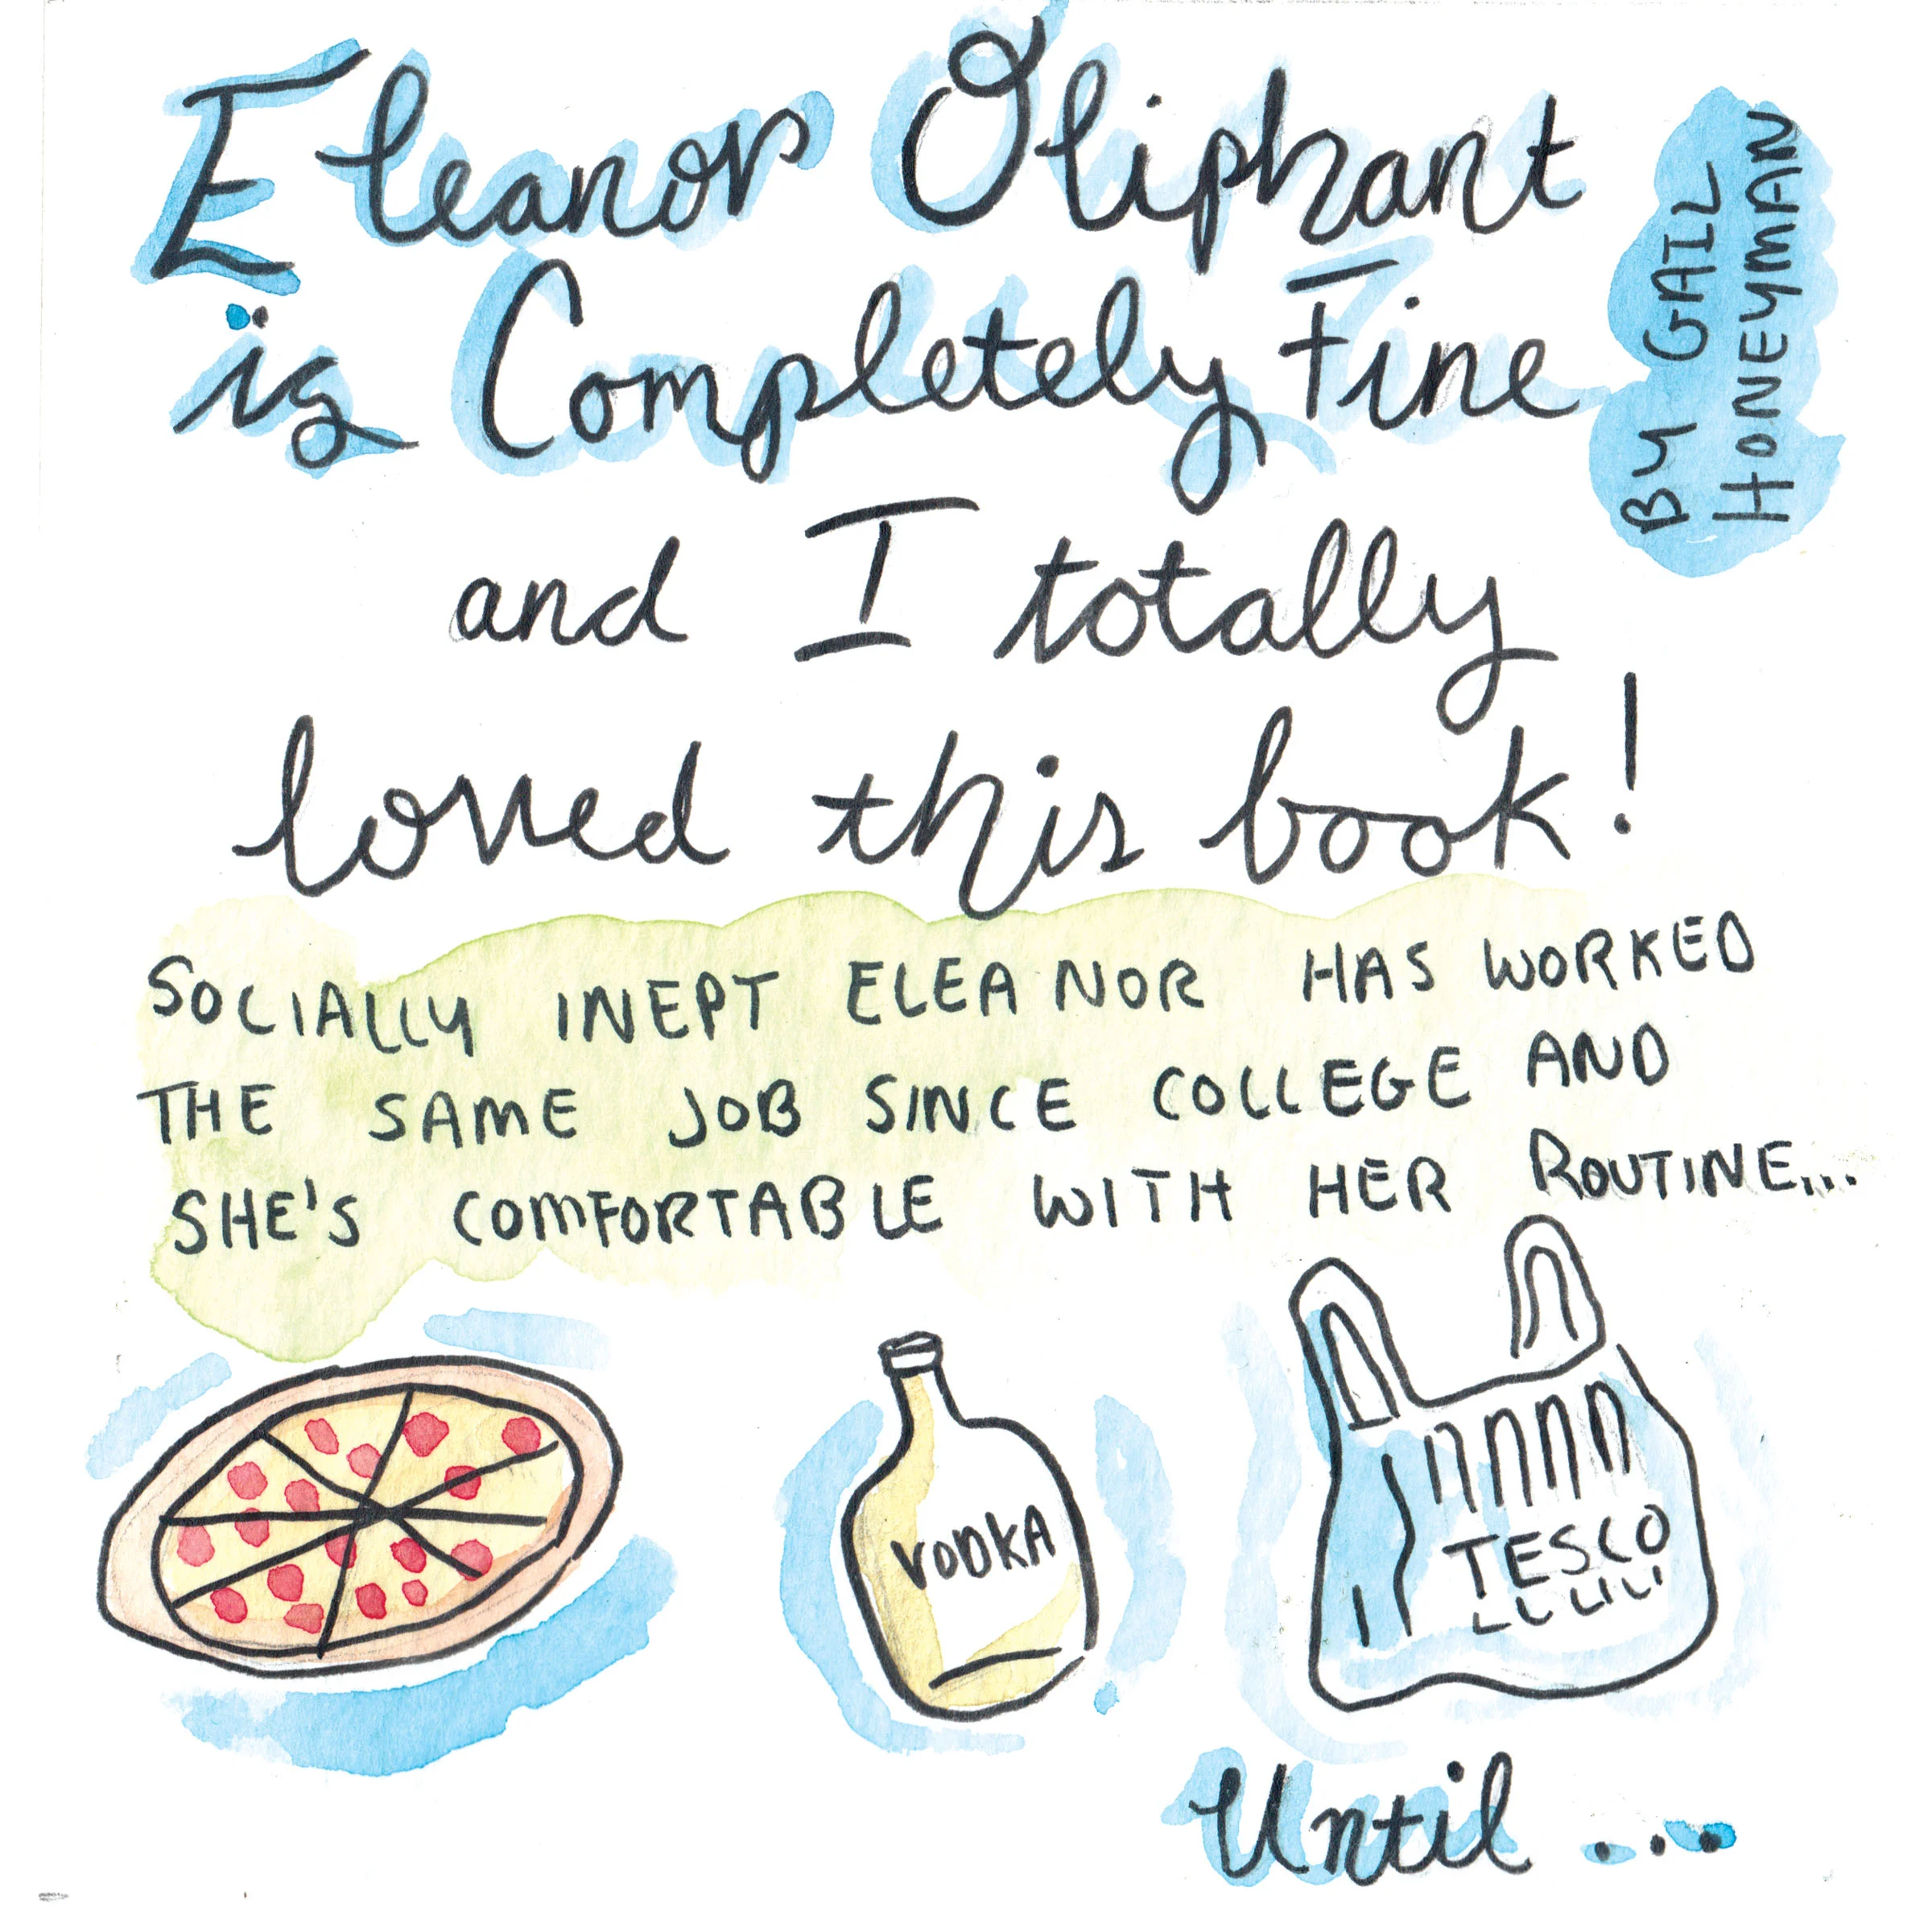 Eleanor Oliphant
is Completely Fine
BY GAIL
HONEYMAN
and I totally
loved this book!
SOCIALLY INEPT ELEANOR HAS WORKED
THE SAME JOB SINCE COLLEGE AND
SHE'S COMFORTABLE WITH HER ROUTINE...
VODKA
TESCO
Until ...